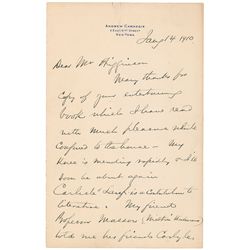 ANDREW CARNEGIE
2 EAST 91ST STREET
NEW YORK
Jany 14 1910
Dear Mr Higginson
Many thanks for
copy of yours entertaining
book which I have read
with much pleasure while
confined to the house – My
Knee is mending rapidly &
soon be about again
Carlyle is a Contribution to
Literature. My friend
Professor Masson
told me his friend Carlyle